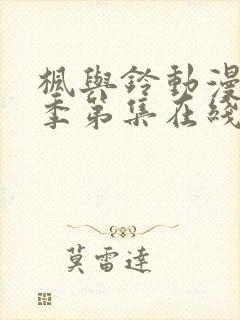 楓與鈴動漫
季第集在綫
莫雷達